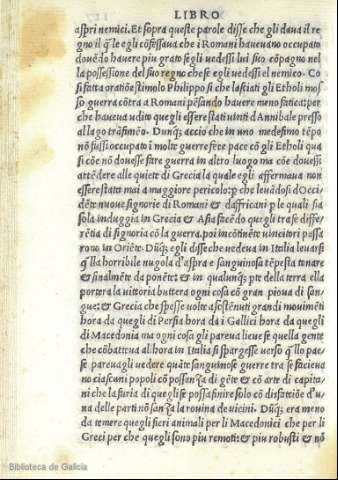 LIBRO
aspri nemici. Et sopra queste parole disse che gli daua il re
gno il q̃le egli cõfessaua che i Romani haueuano occupato
douẽdo hauere piu grato se gli uedessi lui suo cõpagno nel
la possessione del suo regno che se egli uedessi el nemico. Co
si fatta oratiõe stimolo Philippo si che lasciati gli Etholi mos
so guerra cõtra a Romani pẽsando hauere meno fatica: per
che haueua udito quegli essere stati uinti d'Annibale presso
al lago trasimẽo. Dunq; accio che in uno medesimo tẽpo
nõ fussi occupato ĩ molte guerre fece pace cõ gli Etholi qua
si cõe nõ douesse fare guerra in altro luogo ma cõe douessi
attẽdere alle quiete di Grecia la quale egli affermaua non
essere stata mai a maggiore pericolo: p̱ che leuãdosi d'Occi
dẽte nuoue signorie di Romani & d'affricani p̱ le quali sia
sola induggia in Grecia & Asia faccẽdo quegli tra se diffe
rẽtia di signoria cõ la guerra. poi incõtinẽte uincitori passa
rono in Oriẽte. Dũq; egli disse che uedeua in Italia leuarsi
q̃lla horribile nugola d'aspra e sanguinosa tẽpesta tenare
& finalmẽte da ponẽte: & in qualunq; pte della terra ella
portera la uittoria buttera ogni cosa cõ gran pioua di san
gue: & Grecia che spesse uolte a sostẽnuti grandi mouimẽti
hora da quegli di Persia hora da i Gallici hora da quegli
di Macedonia ma ogni cosa gli pareua lieue se quella gente
che cõbatteua al hora in Italia si spargesse uerso q̃llo pae
se pareuagli uedere quãte sanguinose guerre tra se faceua
no ciascuni popoli cõ possanza di gẽte & cõ arte di capita
ni che la furia di quegli se possa finire solo cõ disfattiõe d'u
na delle parti nõ sanza la rouina de uicini. Dũq; era meno
da temere quegli fieri animali per li Macedoni che per li
Greci per che quegli sono piu remoti: & piu robusti & nõ
Biblioteca de Galicia